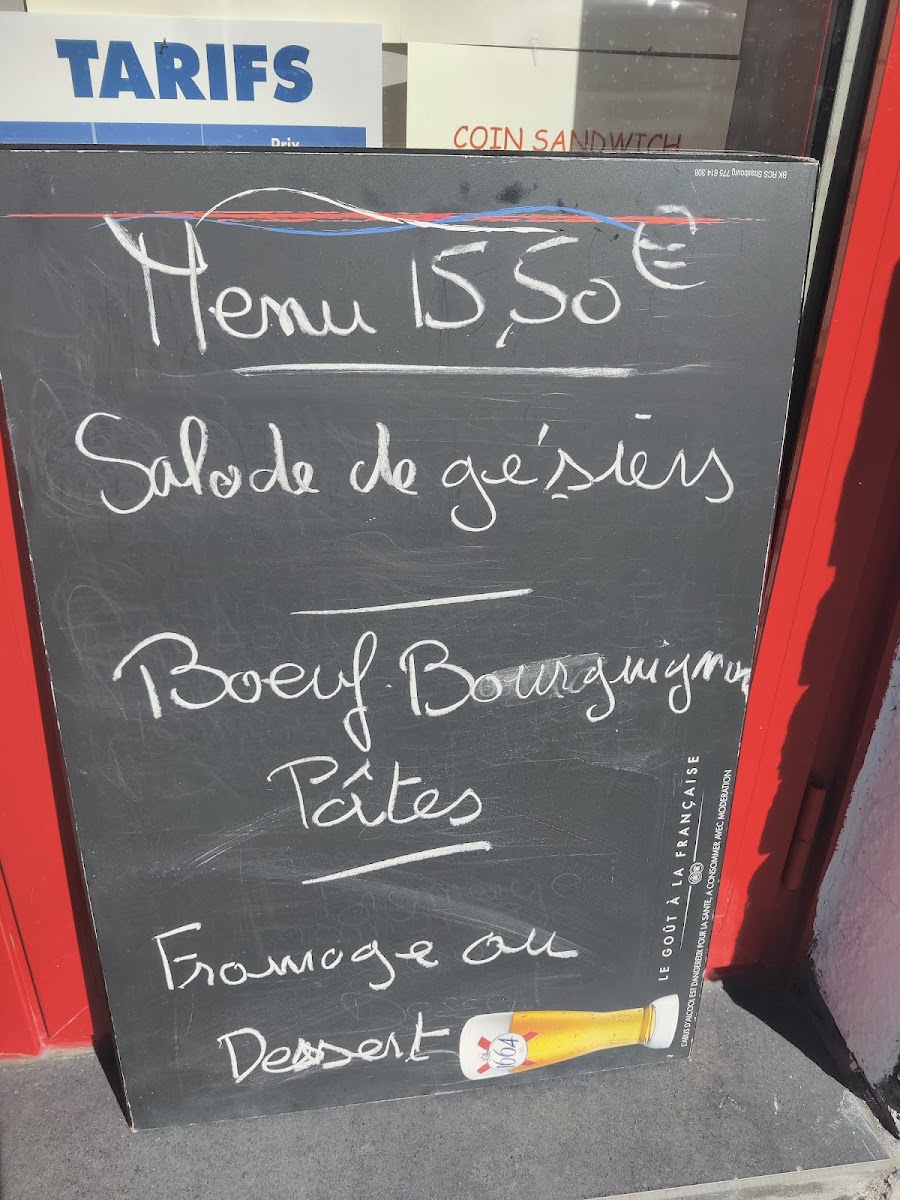 TARIFS
Prix
COIN SANDWICH
BK RCS Strasbourg 775 614 308
Menu 15,50€
Salade de gésiers
Boeuf Bourguignon
Pâtes
Fromage ou
Dessert
1664
LE GOÛT À LA FRANÇAISE
L'ABUS D'ALCOOL EST DANGEREUX POUR LA SANTÉ, A CONSOMMER AVEC MODERATION